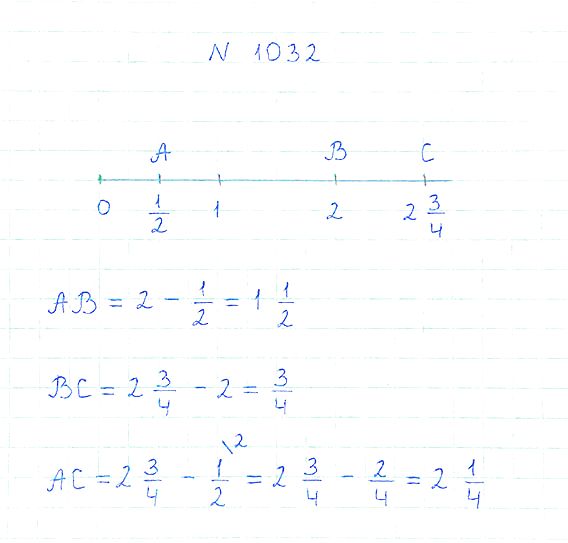 N 1032
A B C
0 1/2 1 2 2 3/4
AB = 2 - 1/2 = 1 1/2
BC = 2 3/4 - 2 = 3/4
AC = 2 3/4 - 1\2/2 = 2 3/4 - 2/4 = 2 1/4